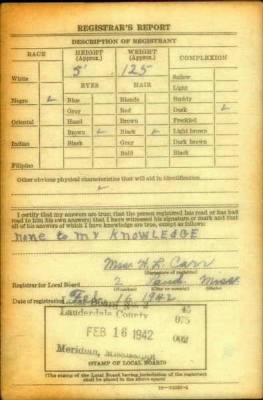 REGISTRAR'S REPORT
DESCRIPTION OF REGISTRANT
RACE
HEIGHT (Approx.)
WEIGHT (Approx.)
COMPLEXION
5' 125
White
Sallow
EYES HAIR
Light
Negro ✓ Blue Blonde Ruddy
Gray Red Dark ✓
Oriental Hazel Brown Freckled
Brown ✓ Black ✓ Light brown
Indian Black Gray Dark brown
Bald Black
Filipino
Other obvious physical characteristics that will aid in identification
I certify that my answers are true; that the person registered has read or has had
read to him his own answers; that I have witnessed his signature or mark and that
all of his answers of which I have knowledge are true, except as follows:
none to my knowledge
Carr
(Signature of registrar)
Registrar for Local Board 2 Miss
(Number) (City or county) (State)
Date of registration Feb 16 1942
Lauderdale County 45
075
FEB 16 1942 002
Meridian,
STAMP OF LOCAL BOARD
(The stamp of the Local Board having jurisdiction of the registrant
shall be placed in the above space)